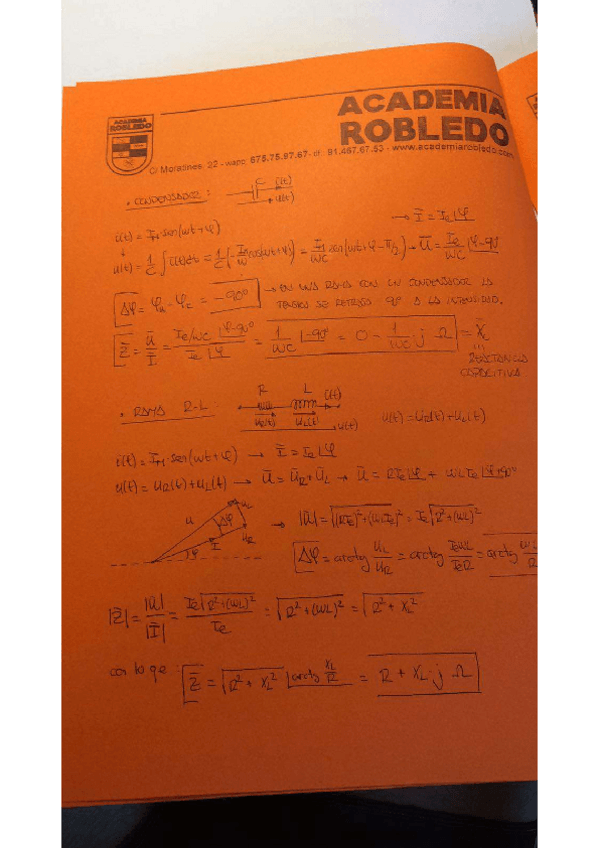 ACADEMIA
ROBLEDO
ACADEMIA
ROBLEDO
C/ Moratines, 22 - wapp. 675.75.97.67- tlf. 91.467.67.53 - www.academiarobledo.com
• CONDENSADOR: C i(t)
u(t)
i(t) = I_M·sen(ωt+φ) → Ī = Ie∠φ
u(t) = 1/C ∫ i(t)dt = 1/C (-I_M/ω cos(ωt+φ)) = I_M/ωC sen(ωt+φ-π/2) → Ū = Ie/ωC ∠φ-90°
Δφ = φu - φi = -90° → EN UNA RAMA CON UN CONDENSADOR LA
TENSIÓN SE RETRASA 90° A LA INTENSIDAD.
Z̄ = Ū/Ī = Ie/ωC ∠φ-90° / Ie∠φ = 1/ωC ∠-90° = 0 - 1/ωC j Ω = X̄c
REACTANCIA
CAPACITIVA
• RAMA R-L: R L i(t)
uR(t) uL(t) u(t) u(t) = uR(t) + uL(t)
i(t) = I_M·sen(ωt+φ) → Ī = Ie∠φ
u(t) = uR(t) + uL(t) → Ū = ŪR + ŪL → Ū = R Ie∠φ + ωL Ie∠φ+90°
U Δφ UL UR φ I → |Ū| = √(RIe)²+(ωLIe)² = Ie√R²+(ωL)²
Δφ = arctg UL/UR = arctg IeωL/IeR = arctg ωL/R
|Z̄| = |Ū|/|Ī| = Ie√R²+(ωL)² / Ie = √R²+(ωL)² = √R² + XL²
con lo que: Z̄ = √R² + XL² ∠arctg XL/R = R + XL·j Ω